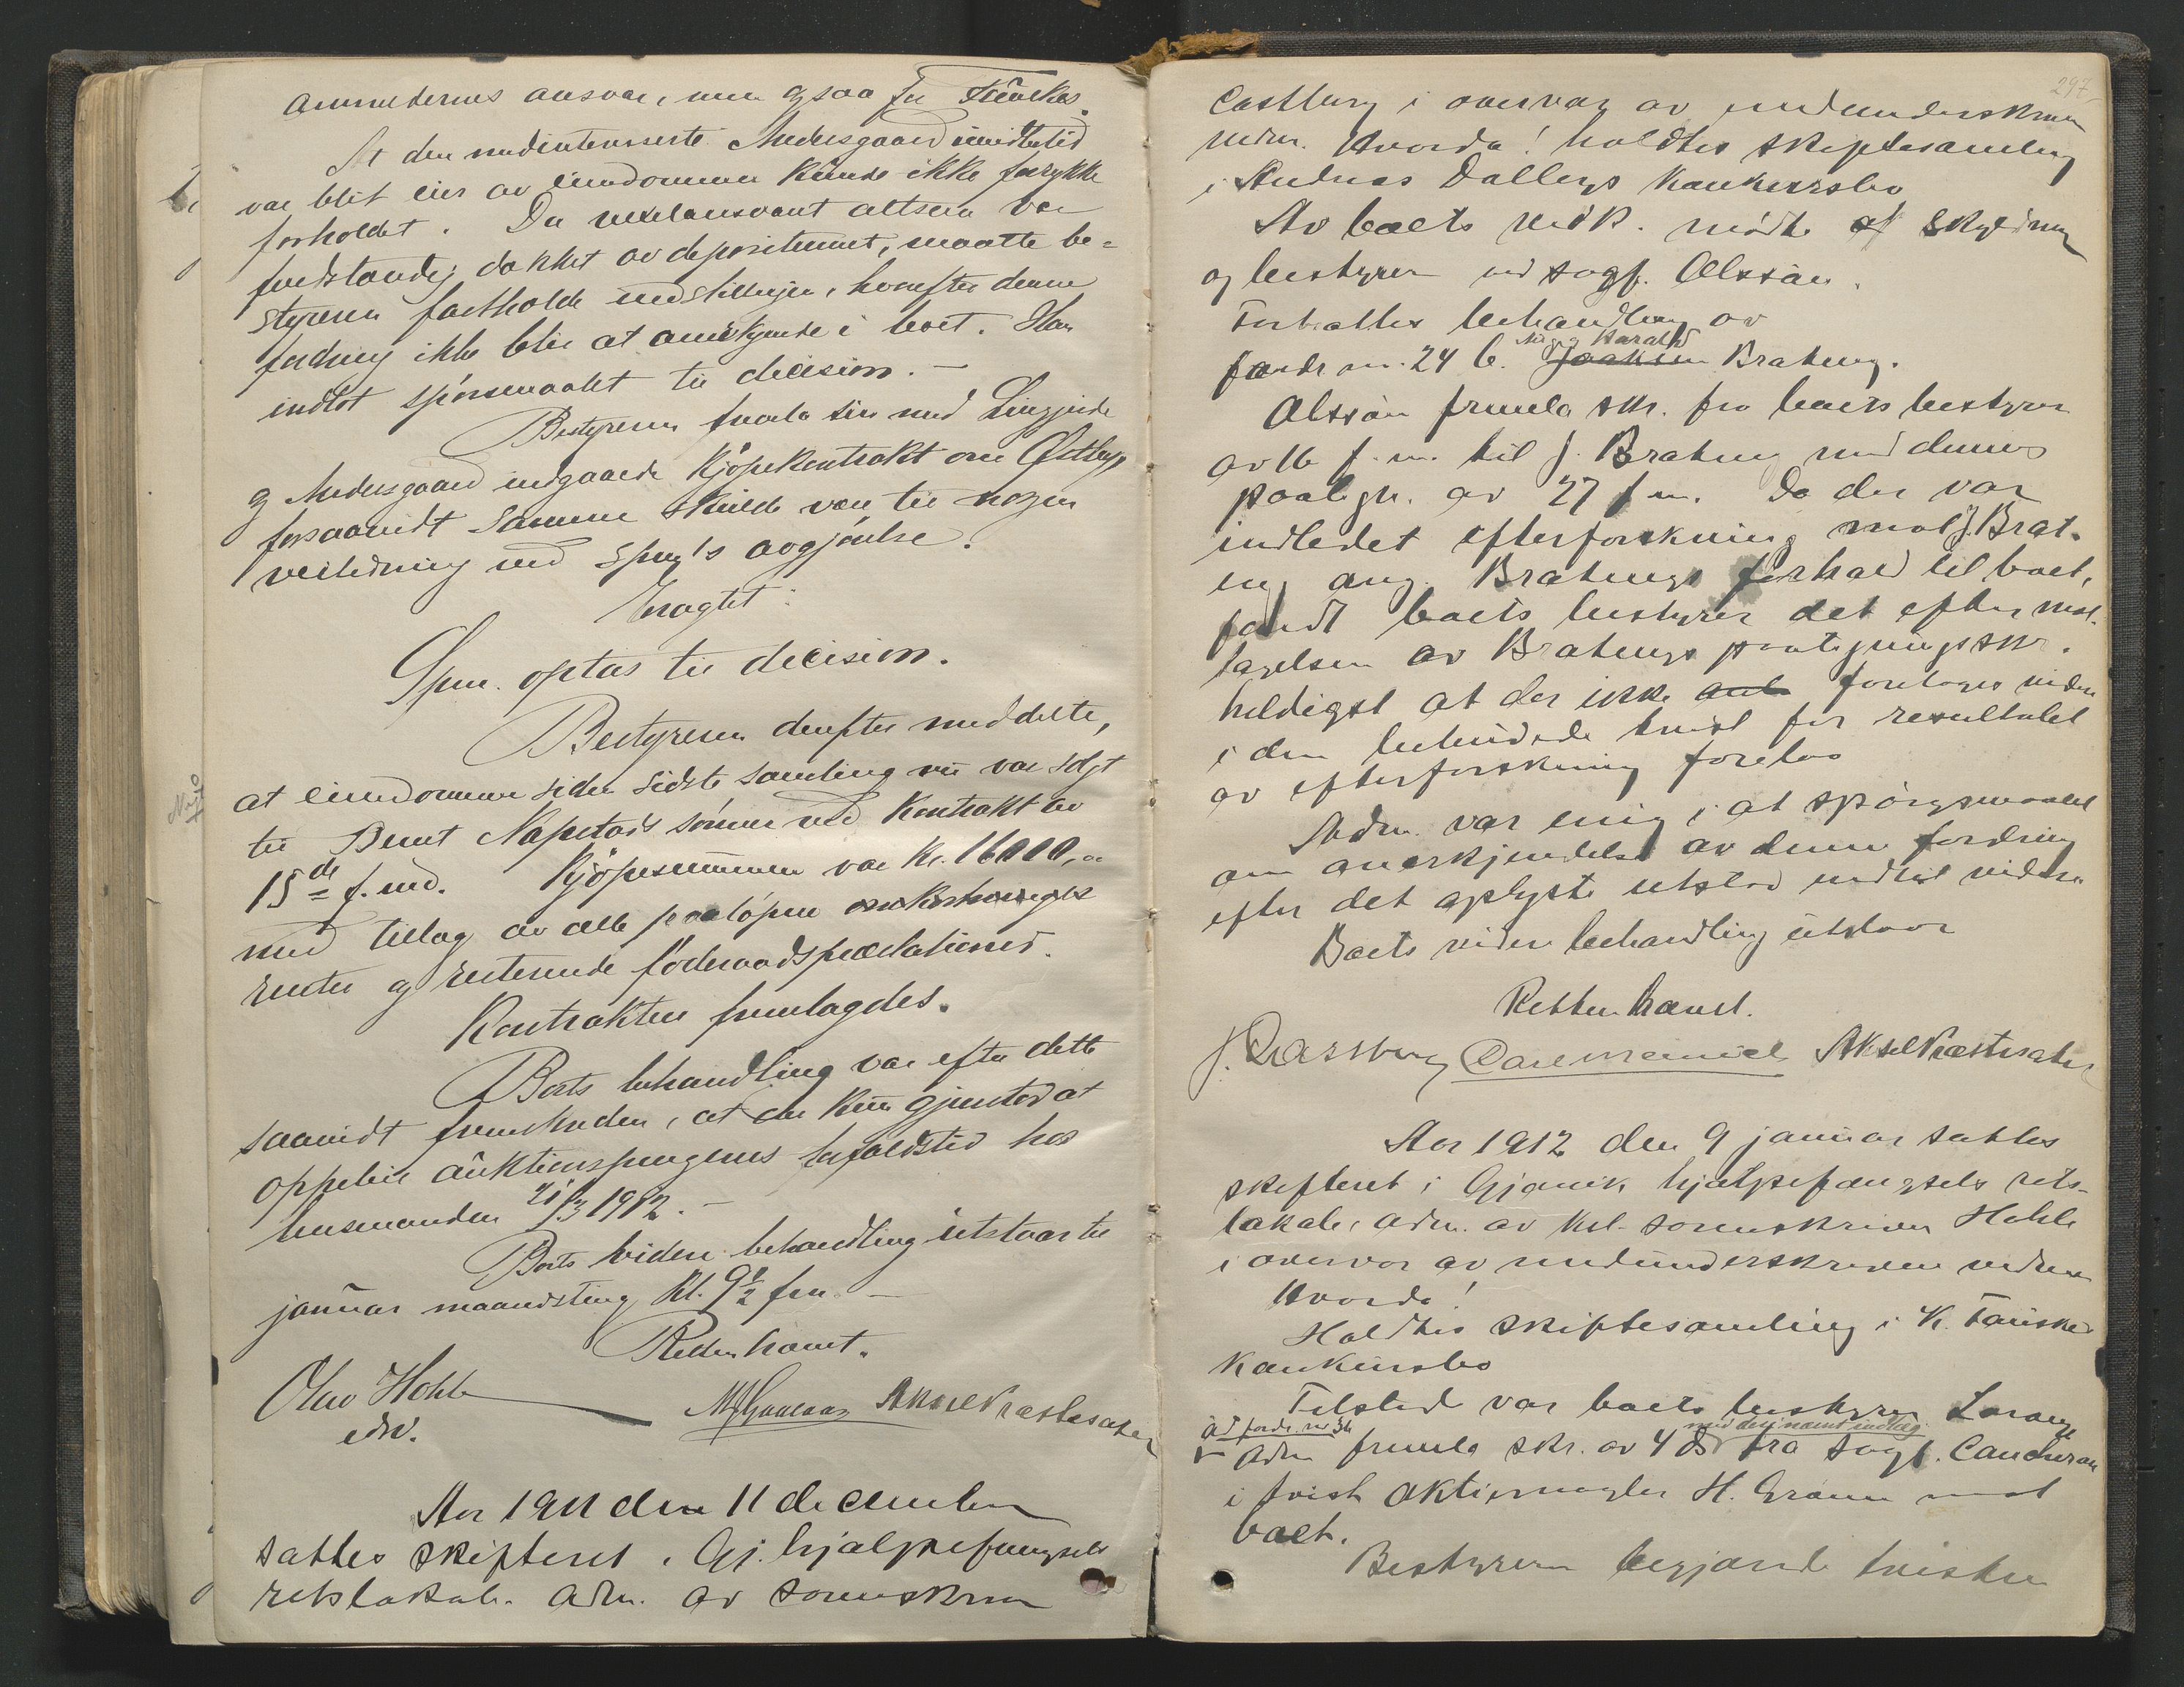 ansvar, men ogsaa for
At den medinteresserte Medusgaard imidlertid
var blit eier av eiendommen kunde ikke forrykke
forholdet. Da vexelansvaret altsaa var
fuldstændig dækket av depositumet, maatte be=
styreren fastholde indstillingen, hvorefter denne
fordring ikke blir at anerkjende i boet. Han
indlot spörsmaalet til decision.-
Bestyreren fremla sin med
og Medusgaard indgaaede kjöpekontrakt om
forsaavidt samme skulde være til nogen
veiledning ved spm's avgjörelse.
Eragtet:
Spm. optas til decision.
Bestyreren derefter meddelte,
at eiendommen siden sidste samling nu var solgt
til Bernt Næpstads sönner ved kontrakt av
15de f. md. Kjöpesummen var kr. 16000,00
med tillæg av alle paalöpne omkostninger
renter og resterende föderaadspræstationer.
Kontrakten fremlagdes.
Boets behandling var efter dette
saavidt fremskreden, at der kun gjenstod at
oppebie auktionspengenes forfaldstid hos
lensmanden 21/3 1912.-
Boets videre behandling utstaar til
januar maanedsting kl. 9½ fm.-
Retten hævet.
Olav Hohle
edsv.
Aksel Præstesæter
Aar 1911 den 11 december
sattes skifteret i Gj. hjælpefængsels
retslokale. Adm. av sorenskriver
297
Castberg i overvær av medunderskrevne
vidner. Hvorda! holdtes skiftesamling
i Andreas Dallbys konkursbo
Av boets vedk. mödte skyldner
og bestyreren ved sagf. Olssön.
Fortsattes behandling av
fordr nr. 24 b. Joakim Harald Brateng.
Olssön fremla skr. fra boets bestyrer
av 16 f. m. til J. Brateng med dennes
paategn. av 27 f m. Da der var
indledet efterforskning mot J. Brat-
eng ang. Bratengs forhold til boet,
fandt boets bestyrer det efter mot-
tagelsen av Bratengs paategningsskr.
heldigst at der ikke foretages videre
i den tvist för resultatet
av efterforskning forelaa
Adm. var enig i at spörgsmaalet
om anerkjendelse av denne fordring
efter det oplyste utstod indtil videre
Boets videre behandling utstaar
Retten hævet.
J. Castberg Aksel Præstesæter
Aar 1912 den 9 januar sattes
skifteret i Gjövik hjælpefængsels rets-
lokale, adm. av kst. sorenskriver Hohle
i overvær av medunderskrevne vidner
Hvorda!
Holdtes skiftesamling i K.
konkursbo
Tilstede var boets bestyrer
ad fordr. nr 36
med deri nævnt indlæg
Adm fremla skr. av 4 ds fra sagf.
i tvist aktiemægler H. Gran mot
boet.
Bestyreren begjærte tvisten